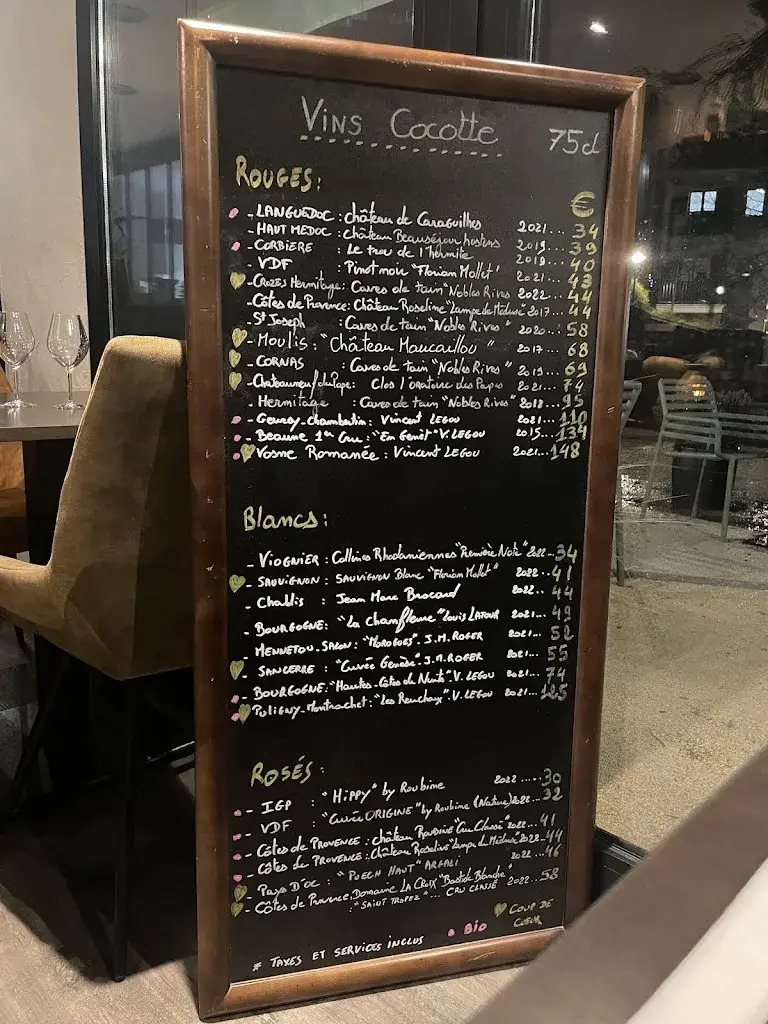 Vins Cocotte 75cl
ROUGES: €
- LANGUEDOC : château de Caraguilhes 2021... 34
- HAUT MEDOC : château Beauséjour hostens 2019... 39
- CORBIERE : Le trou de l'hermite 2019... 40
- VDF : Pinot noir "Florian Mollet" 2021... 43
- Crozes Hermitage: Caves de tain "Nobles Rives" 2022... 44
- Côtes de Provence: Château Roseline "Lampe de Méduse" 2017... 44
- St Joseph : Caves de tain "Nobles Rives" 2020... 58
- MOULIS : "Château Maucaillou" 2017... 68
- CORNAS : Caves de tain "Nobles Rives" 2019... 69
- Chateauneuf du Pape: Clos l'oratoire des Papes 2021... 74
- Hermitage : Caves de tain "Nobles Rives" 2018... 95
- Gevrey-chambertin: Vincent LEGOU 2021... 110
- Beaune 1er Cru : "En Genêt" V. LEGOU 2015... 134
- Vosne Romanée : Vincent LEGOU 2021... 148
Blancs:
- VIOGNIER : Collines Rhodaniennes "Première Note" 2022... 34
- SAUVIGNON : SAUVIGNON Blanc "Florian Mollet" 2022... 41
- Chablis : Jean Marc Brocard 2022... 44
- BOURGOGNE: "La chanfleure" Louis LATOUR 2021... 49
- MENNETOU-SALON: "MOROGUES". J.M. ROGER 2021... 52
- SANCERRE : "Cuvée Genèse". J.M. ROGER 2021... 55
- BOURGOGNE: "Hautes-Côtes de Nuits". V. LEGOU 2021... 74
- PULIGNY-Montrachet: "Les Reuchaux". V. LEGOU 2021... 125
ROSÉS:
- IGP : "HiPPY" by Roubine 2022..... 30
- VDF : "Cuvée ORIGINE" by Roubine (Nature) 2022... 32
- Côtes de PROVENCE: château ROUBINE "Cru Classé" 2022... 41
- Côtes de PROVENCE: Château Roseline "Lampe de Méduse" 2022... 44
- Pays D'OC : "PUECH HAUT" ARGALI 2022... 46
- Côtes de Provence, Domaine LA CROIX "Bastide Blanche"
: "SAINT TROPEZ"... CRU CLASSÉ 2022... 58
* TAXES ET SERVICES INCLUS
BiO
COUP DE
CŒUR